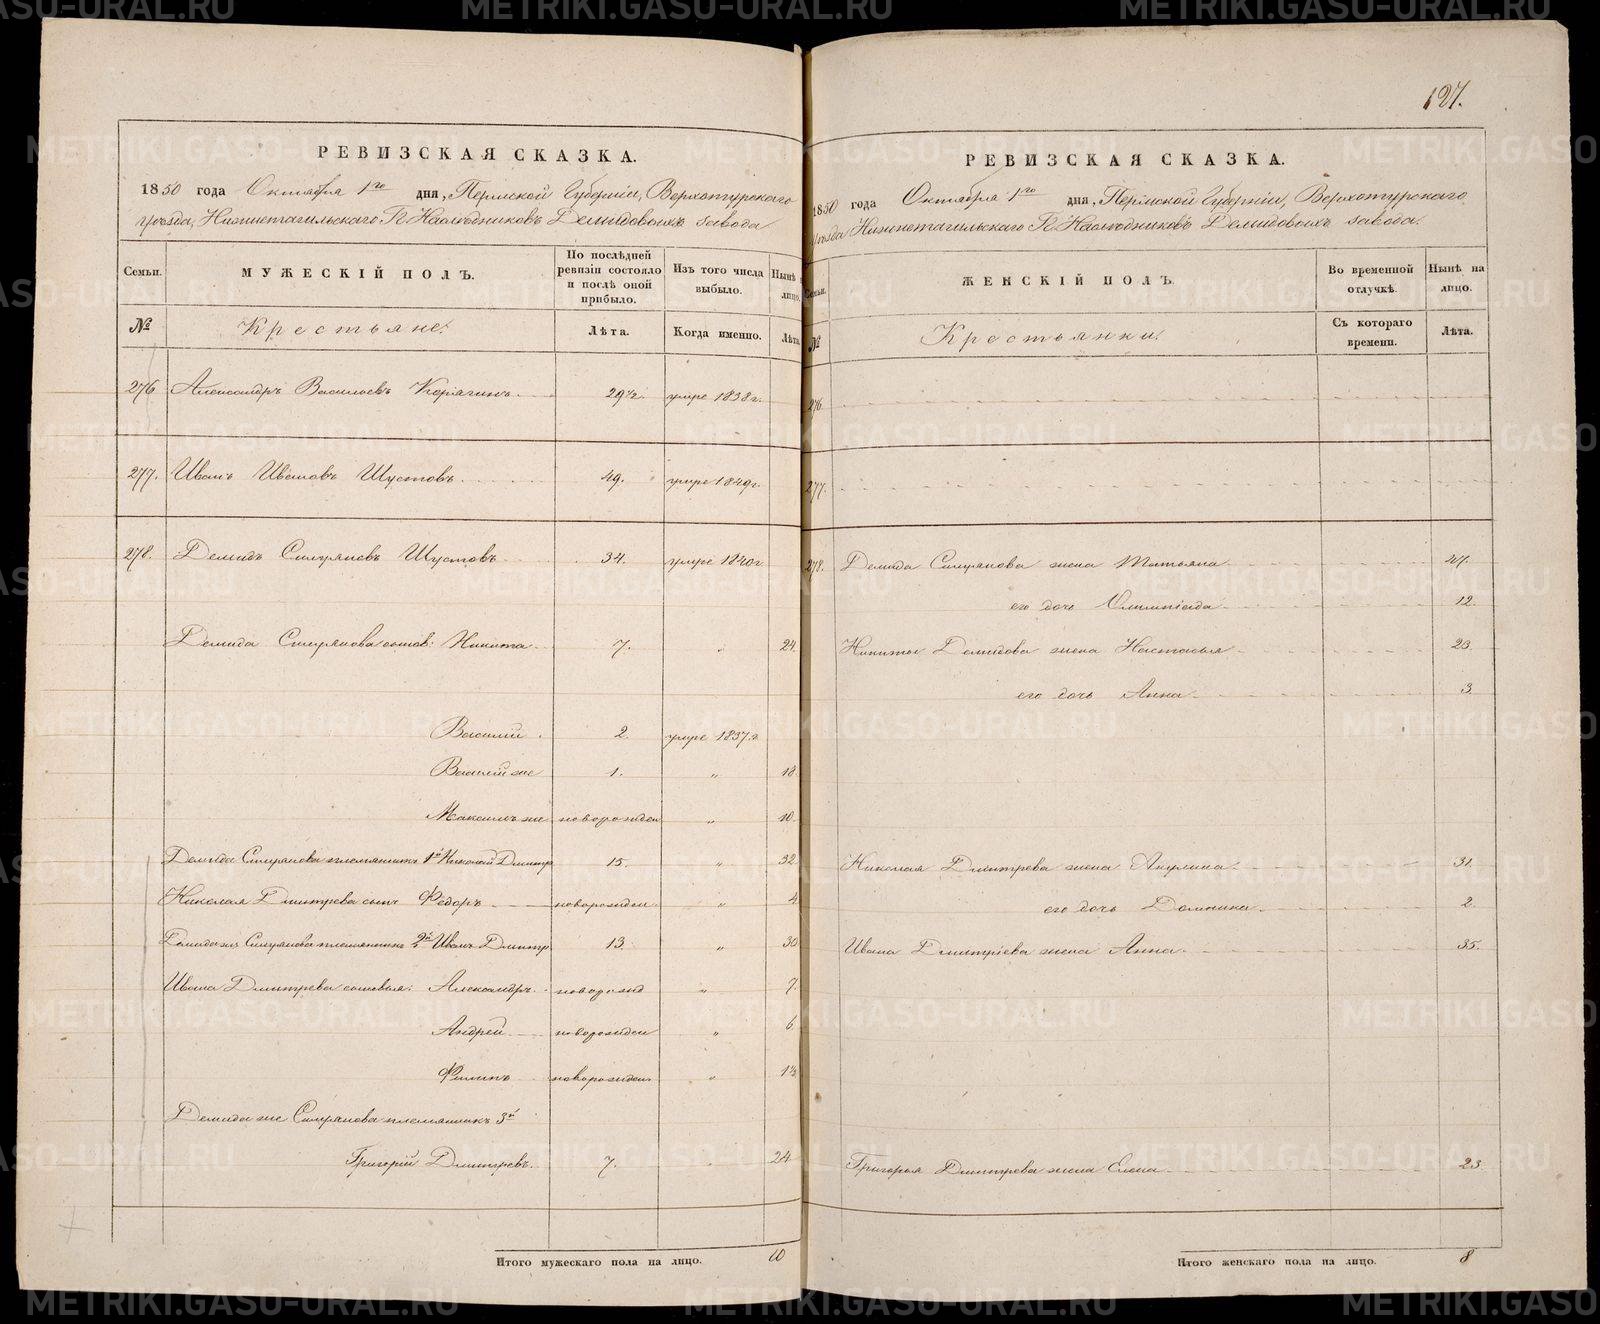 РЕВИЗСКАЯ СКАЗКА.
1850 года Октября 1го дня, Пермской Губерніи, Верхотурскаго
уѣзда, Нижнетагильскаго Г. Наслѣдниковъ Демидовыхъ завода
Семьи.
МУЖЕСКІЙ ПОЛЪ.
По послѣдней ревизіи состояло и послѣ оной прибыло.
Изъ того числа выбыло.
Нынѣ на лицо.
№
Крестьяне:
Лѣта.
Когда именно.
Лѣта.
276 Александръ Васильевъ Корягинъ. 29½. умре 1838 г.
277. Иванъ Ивановъ Шустовъ. 49. умре 1849 г.
278. Демидъ Сидоров Шустовъ 34. умре 1840 г
Демида сынов: Никита 7. „ 24.
Василій 2. умре 1837. г.
Василій же 1. „ 18.
Максимъ же новорожден „ 10.
Демида племянникъ 1й Николай Дмитр 15. „ 32.
Николая Дмитрева сынъ Федоръ новорожден. „ 4
Демида же племянникъ 2й Иванъ Дмитр 13. „ 30
Ивана Дмитрева сыновья: Александръ новорожд „ 7.
Андрей новорожден „ 6
Филипъ новорожден. „ 1½
Демида же племянникъ 3й
Григорій Дмитревъ. 7. „ 24
Итого мужескаго пола на лицо. 10
127.
РЕВИЗСКАЯ СКАЗКА.
1850 года Октября 1го дня, Пермской Губерніи, Верхотурскаго
уѣзда Нижнетагильскаго Г. Наслѣдниковъ Демидовыхъ завода.
Семьи.
ЖЕНСКІЙ ПОЛЪ.
Во временной отлучкѣ.
Нынѣ на лицо.
№
Крестьянки:
Съ котораго времени.
Лѣта.
276.
277.
278. Демида жена Татьяна 47.
его дочь Олимпіада 12.
Никиты Демидова жена Настасья 23.
его дочь Анна 3
Николая Дмитрева жена Акулина 31.
его дочь Домника. 2.
Ивана Дмитріева жена Анна 35.
Григорья Дмитрева жена Елена 23.
Итого женскаго пола на лицо. 8
METRIKI.GASO-URAL.RU